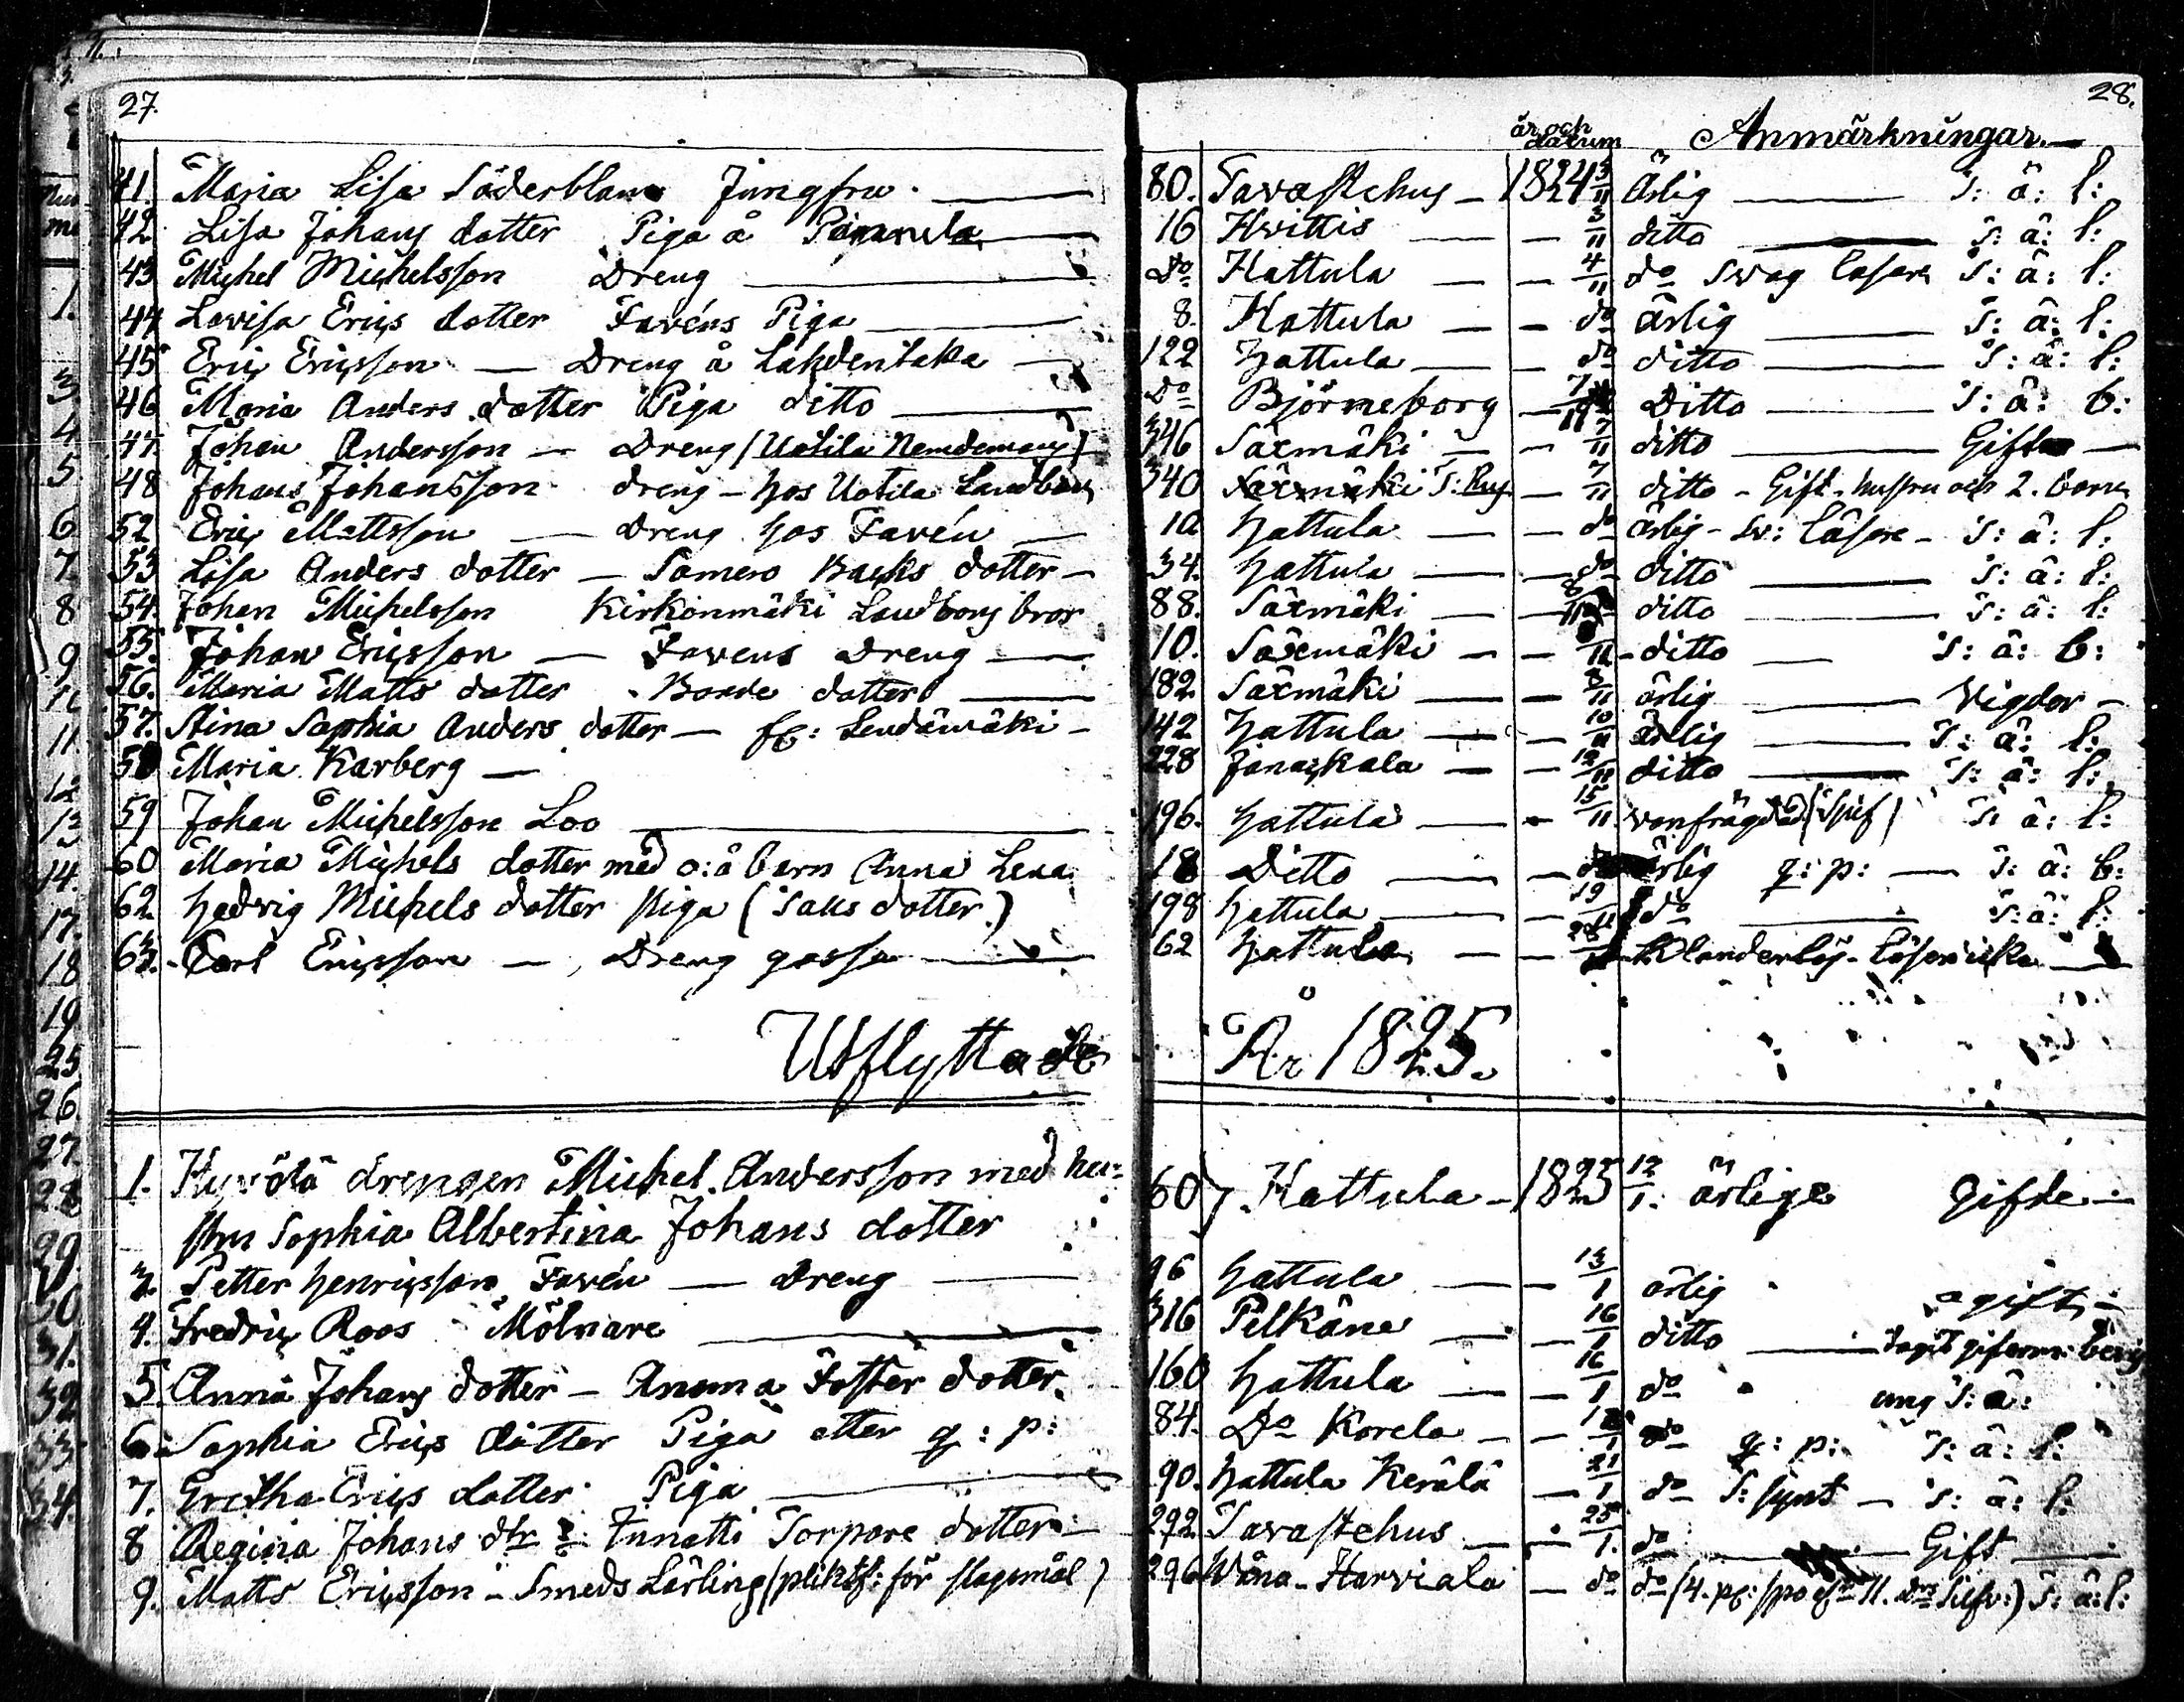 27.
41. Maria Lisa Söderblam Jungfru.
42 Lisa Johans dotter Piga å
43 Michel Michelsson Dreng
44 Lovisa Erics dotter Favéns Piga
45 Eric Ericsson — Dreng å Lahdentaka
46 Maria Anders dotter Piga ditto
47. Johan Andersson — Dreng (Uotila Nemdemans)
48 Johans Johansson dreng — hos Uotila Landbon
52 Eric Mattsson — Dreng hos Favén
53 Lisa Anders dotter — Samero Backs dotter —
54. Johan Michelsson Kirkonmäki Landbons bror
55. Johan Ericsson — Favens Dreng
56. Maria Matts dotter Bonde dotter
57. Stina Sophia Anders dotter — Lendämäki —
58 Maria Karberg —
59 Johan Michelsson Loo
60 Maria Michels dotter med o: å barn Anna Lena
62 Hedvig Michels dotter Piga (Saks dotter)
63. Carl Ericsson —, Dreng gosse
Utflyttade
1. drengen Michel Andersson med hu=
stru Sophia Albertina Johans dotter
3. Petter Henricsson Favén — Dreng
4. Fredric Roos Mölnare
5. Anna Johans dotter — Anoma Foster dotter.
6. Sophia Erics dotter Piga etter q: p:
7. Gretha Erics dotter Piga
8 Regina Johans dtr Innatti Torpare dotter —
9. Matts Ericsson — Smeds Lärling (plikts: för slagsmål)
28.
år och datum Anmärkningar. —
80. Tavastehus — 1824 3/11 Ärlig — S: ä: l:
16 Hvittis — — 3/11 ditto — S: ä: l:
Do Hattula — — 4/11 do Svag läsare S: ä: l:
8. Hattula — — do ärlig — S: ä: l:
122 Hattula — — do ditto — S: ä: l:
Do Björneborg — 7/11 Ditto — S: ä: b:
346 Säxmäki — — 7/11 ditto — Gift —
340 Säxmäki — 7/11 ditto — Gift — hustru och 2. barn
10 Hattula — — do ärlig — Sv: läsare — S: ä: l:
34. Hattula — — do ditto — S: ä: l:
88. Säxmäki — 8/11 ditto — S: ä: l:
10. Säxmäki — — ditto — S: ä: b:
182 Säxmäki — 8/11 ärlig — Vigder —
142 Hattula — — 10/11 ärlig — S: ä: l:
228 Janackala — — 12/11 ditto — S: ä: l:
196. Hattula — — 15/11 vanfrägdad S: ä: l:
18 Ditto — — do ärlig q: p: — S: ä: b:
198 Hattula — — 19/11 do — S: ä: l:
62 Hattula — — Klanderlös —
År 1825.
60 7. Hattula — 1825 12/1: ärlige Gifte —
96 Hattula — — 13/1 ärlig ogift —
316 Pelkäne — — 16/1 ditto —
160 Hattula — — 16/1 do ung S: ä:
84. Do Korela — — do q: p: S: ä: l:
90. Hattula Kerälä — 21/1 do S: synt — S: ä: l:
292 Tavastehus — 25/1. do — Gift —
296 Wåna — Harviala — do do S: ä: l: